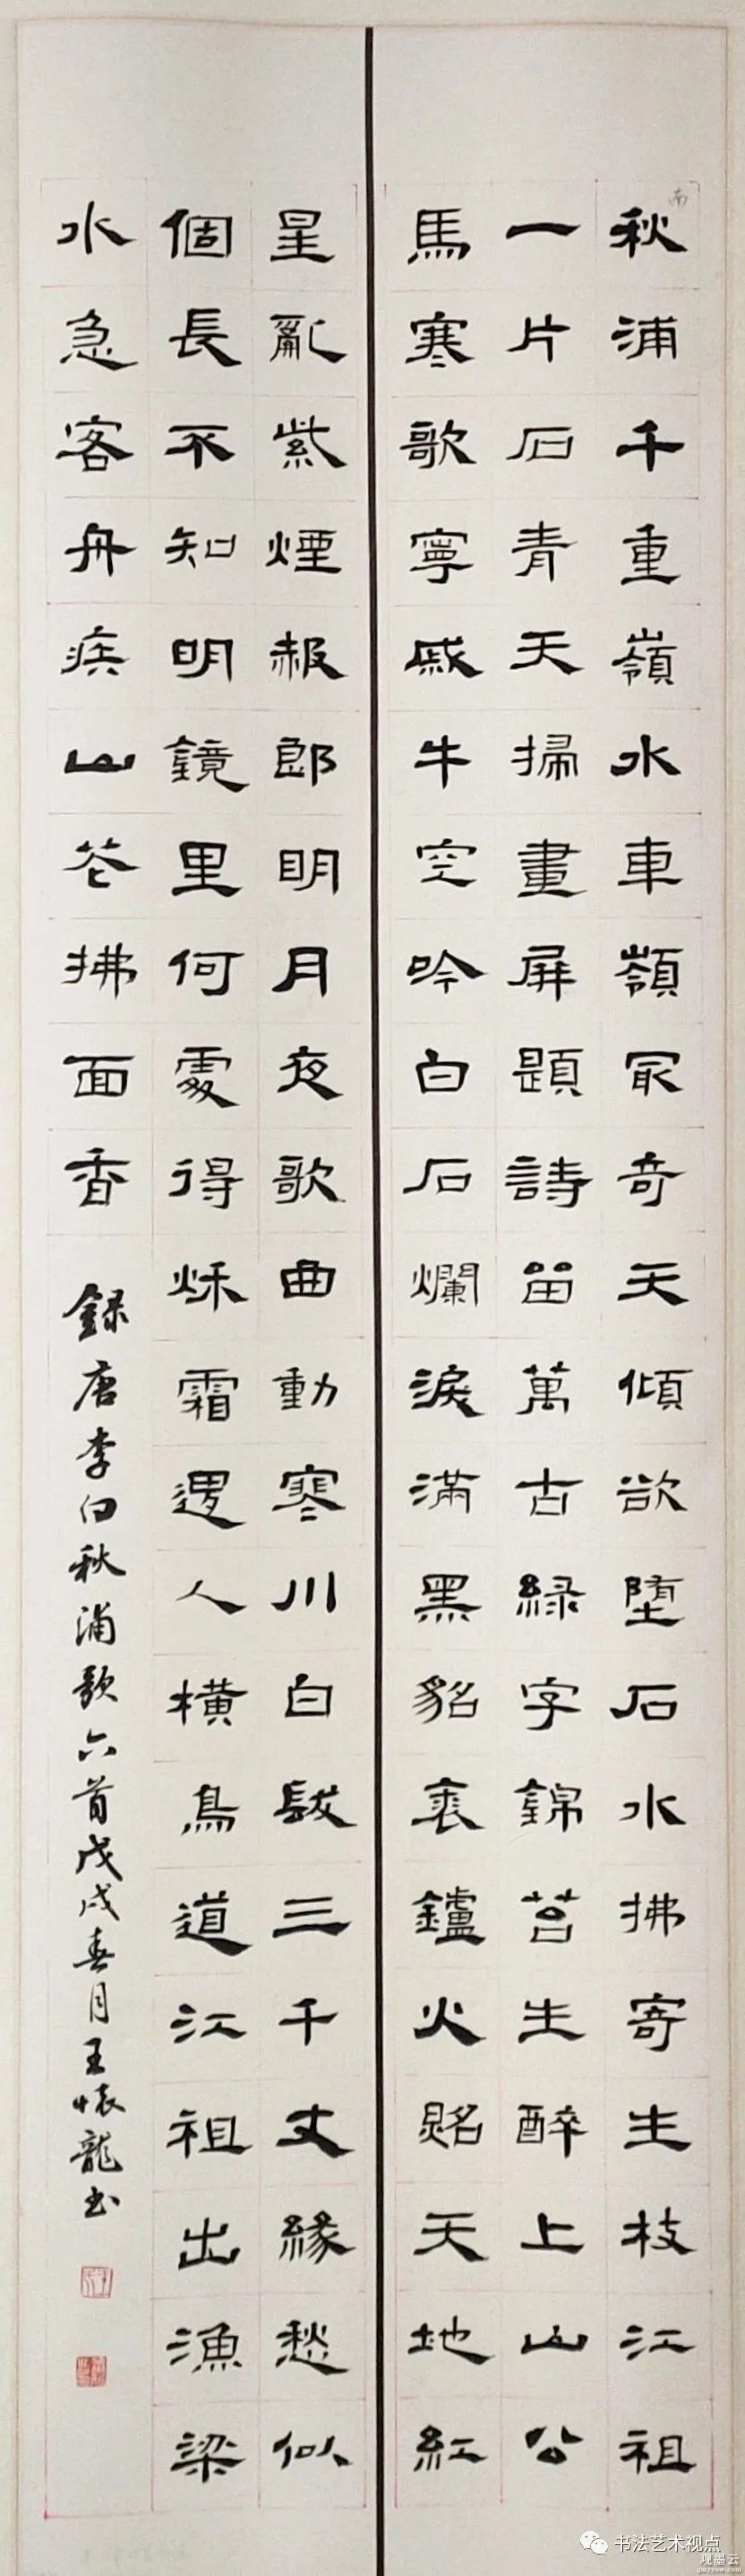 秋浦千重嶺水車嶺冣奇天傾欲墮石水拂寄生枝江祖
一片石青天掃畫屏題詩留萬古綠字錦苔生醉上山公
馬寒歌寧戚牛空吟白石爛淚滿黑貂裘鑪火照天地紅
星亂紫煙赧郎明月夜歌曲動寒川白髮三千丈緣愁似
個長不知明鏡里何處得秌霜邏人橫鳥道江祖出漁梁
水急客舟疾山花拂面香
錄唐李白秋浦歌六首戊戌春月王懷龍書
书法艺术视点
观墨云